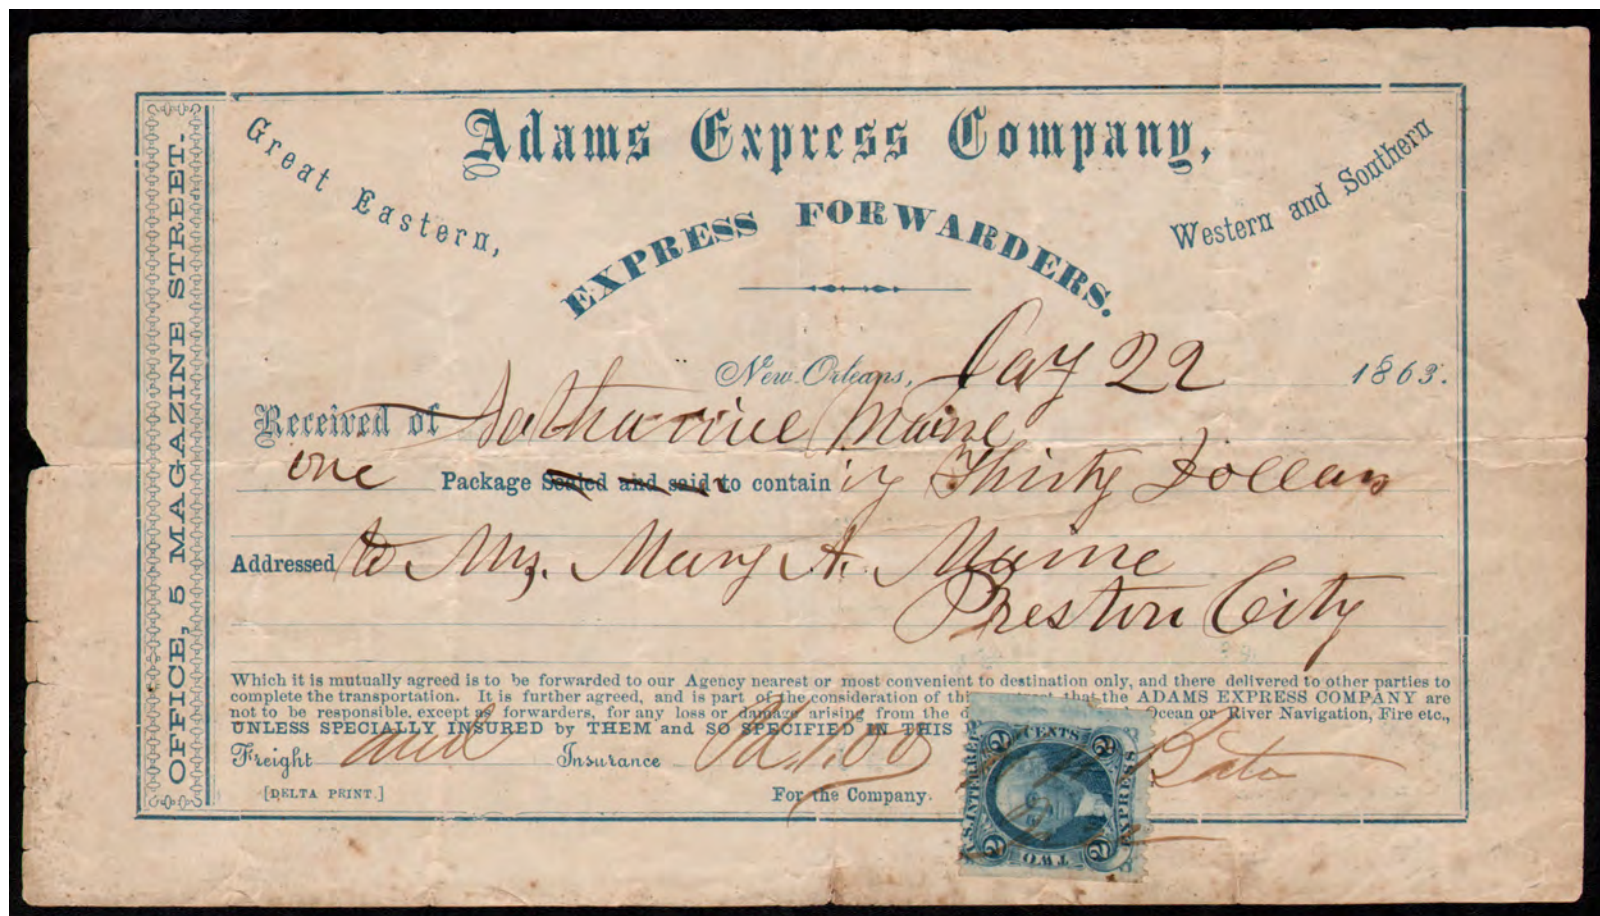 Adams Express Company,
Great Eastern,
Western and Southern
EXPRESS FORWARDERS.
OFFICE, 5 MAGAZINE STREET.
New Orleans, 22 1863.
Received of Maine
one Package Sealed and said to contain Thirty Dollars
Addressed to Mary A. Maine
Preston City
Which it is mutually agreed is to be forwarded to our Agency nearest or most convenient to destination only, and there delivered to other parties to
complete the transportation. It is further agreed, and is part of the consideration of that the ADAMS EXPRESS COMPANY are
not to be responsible, except as forwarders, for any loss or damage arising from the Ocean or River Navigation, Fire etc.,
UNLESS SPECIALLY INSURED by THEM and SO SPECIFIED IN THIS
Freight and Insurance Pd. 1.00
[DELTA PRINT.] For the Company.
2 CENTS 2
U.S. INTER. REV.
EXPRESS
2 TWO 2